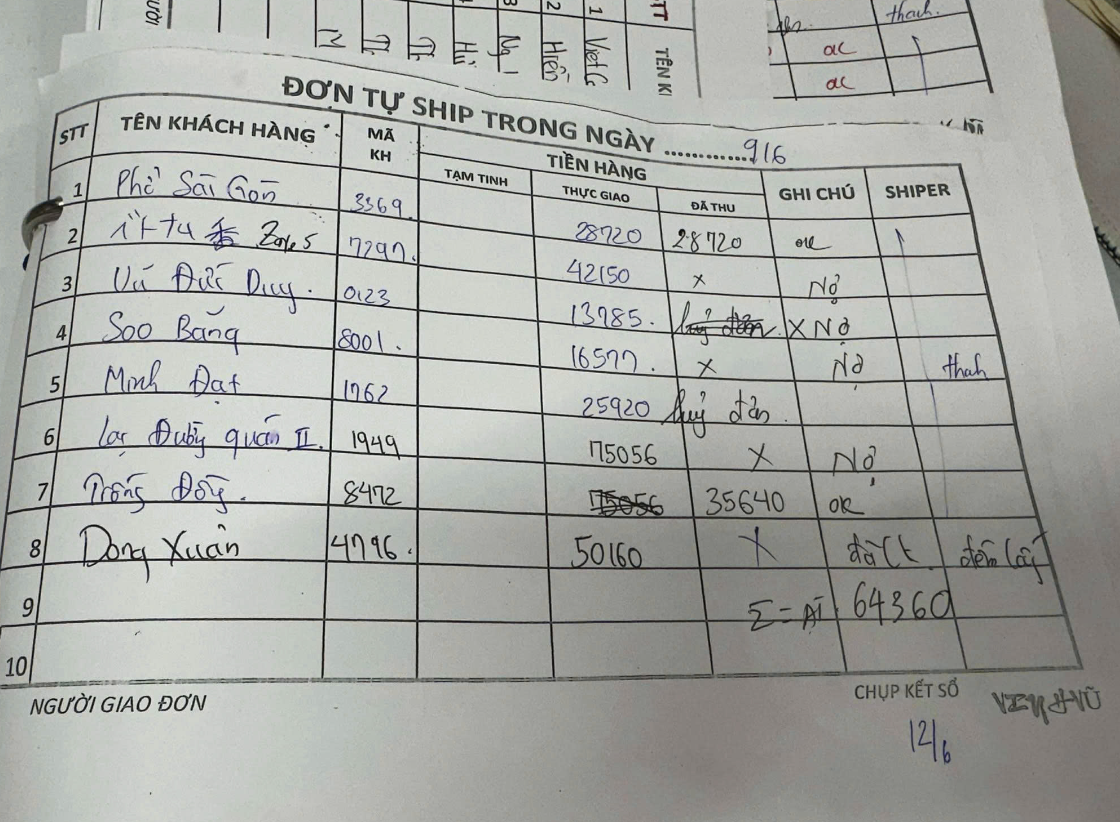 thanh.
ac
ac
TT TÊN KH
1
2 Hiền
3
ĐƠN TỰ SHIP TRONG NGÀY .............9/6
STT TÊN KHÁCH HÀNG MÃ KH TIỀN HÀNG GHI CHÚ SHIPER
TẠM TINH THỰC GIAO ĐÃ THU
1 Phở Sài Gòn 3369. 28720 28720 ok
2 Zone 5 7297. 42150 x Nợ
3 Vũ Đức Duy. 0123 13985. X Nợ
4 Soo Băng 8001. 16577. x Nợ thanh
5 Minh Đạt 1762 25920 huỷ đơn.
6 Lạc Đường quán II. 1949 175056 X Nợ
7 Trống Đồng. 8472 35640 OK
8 Dong Xuân 4796. 50160 X đã Ck đến lấy
9 Σ = 64360
10
NGƯỜI GIAO ĐƠN CHỤP KẾT SỔ
12/6